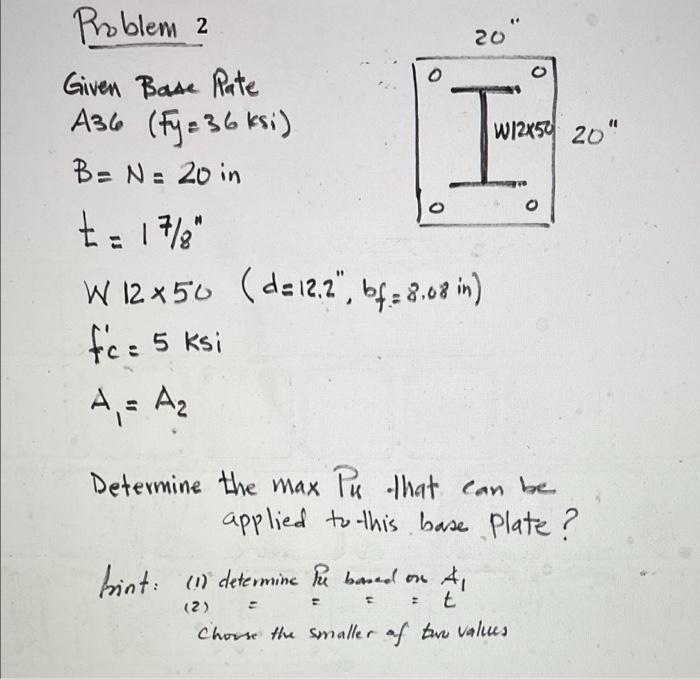 Problem 2
20"
Given Base Plate
A36 (Fy = 36 ksi)
W12x50 20"
B = N = 20 in
t = 1 7/8"
W 12 x 50 (d = 12.2", bf = 8.08 in)
f'c = 5 ksi
A1 = A2
Determine the max Pu that can be
applied to this base plate?
hint: (1) determine Pu based on A1
(2) = = = = t
Choose the smaller of two values